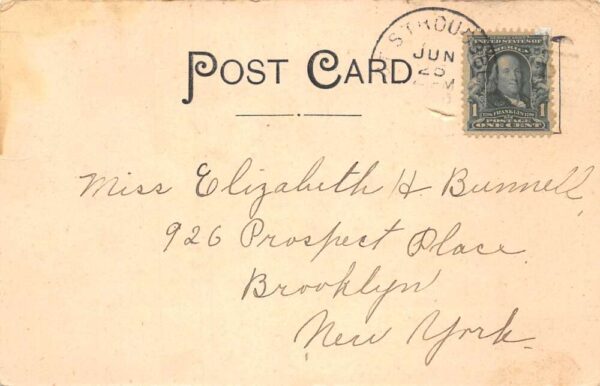 E STROUD
JUN
POST CARD
UNITED STATES OF
AMERICA
1 FRANKLIN 1
POSTAGE
ONE CENT
Miss Elizabeth H Bunnell
926 Prospect Place
Brooklyn
New York.